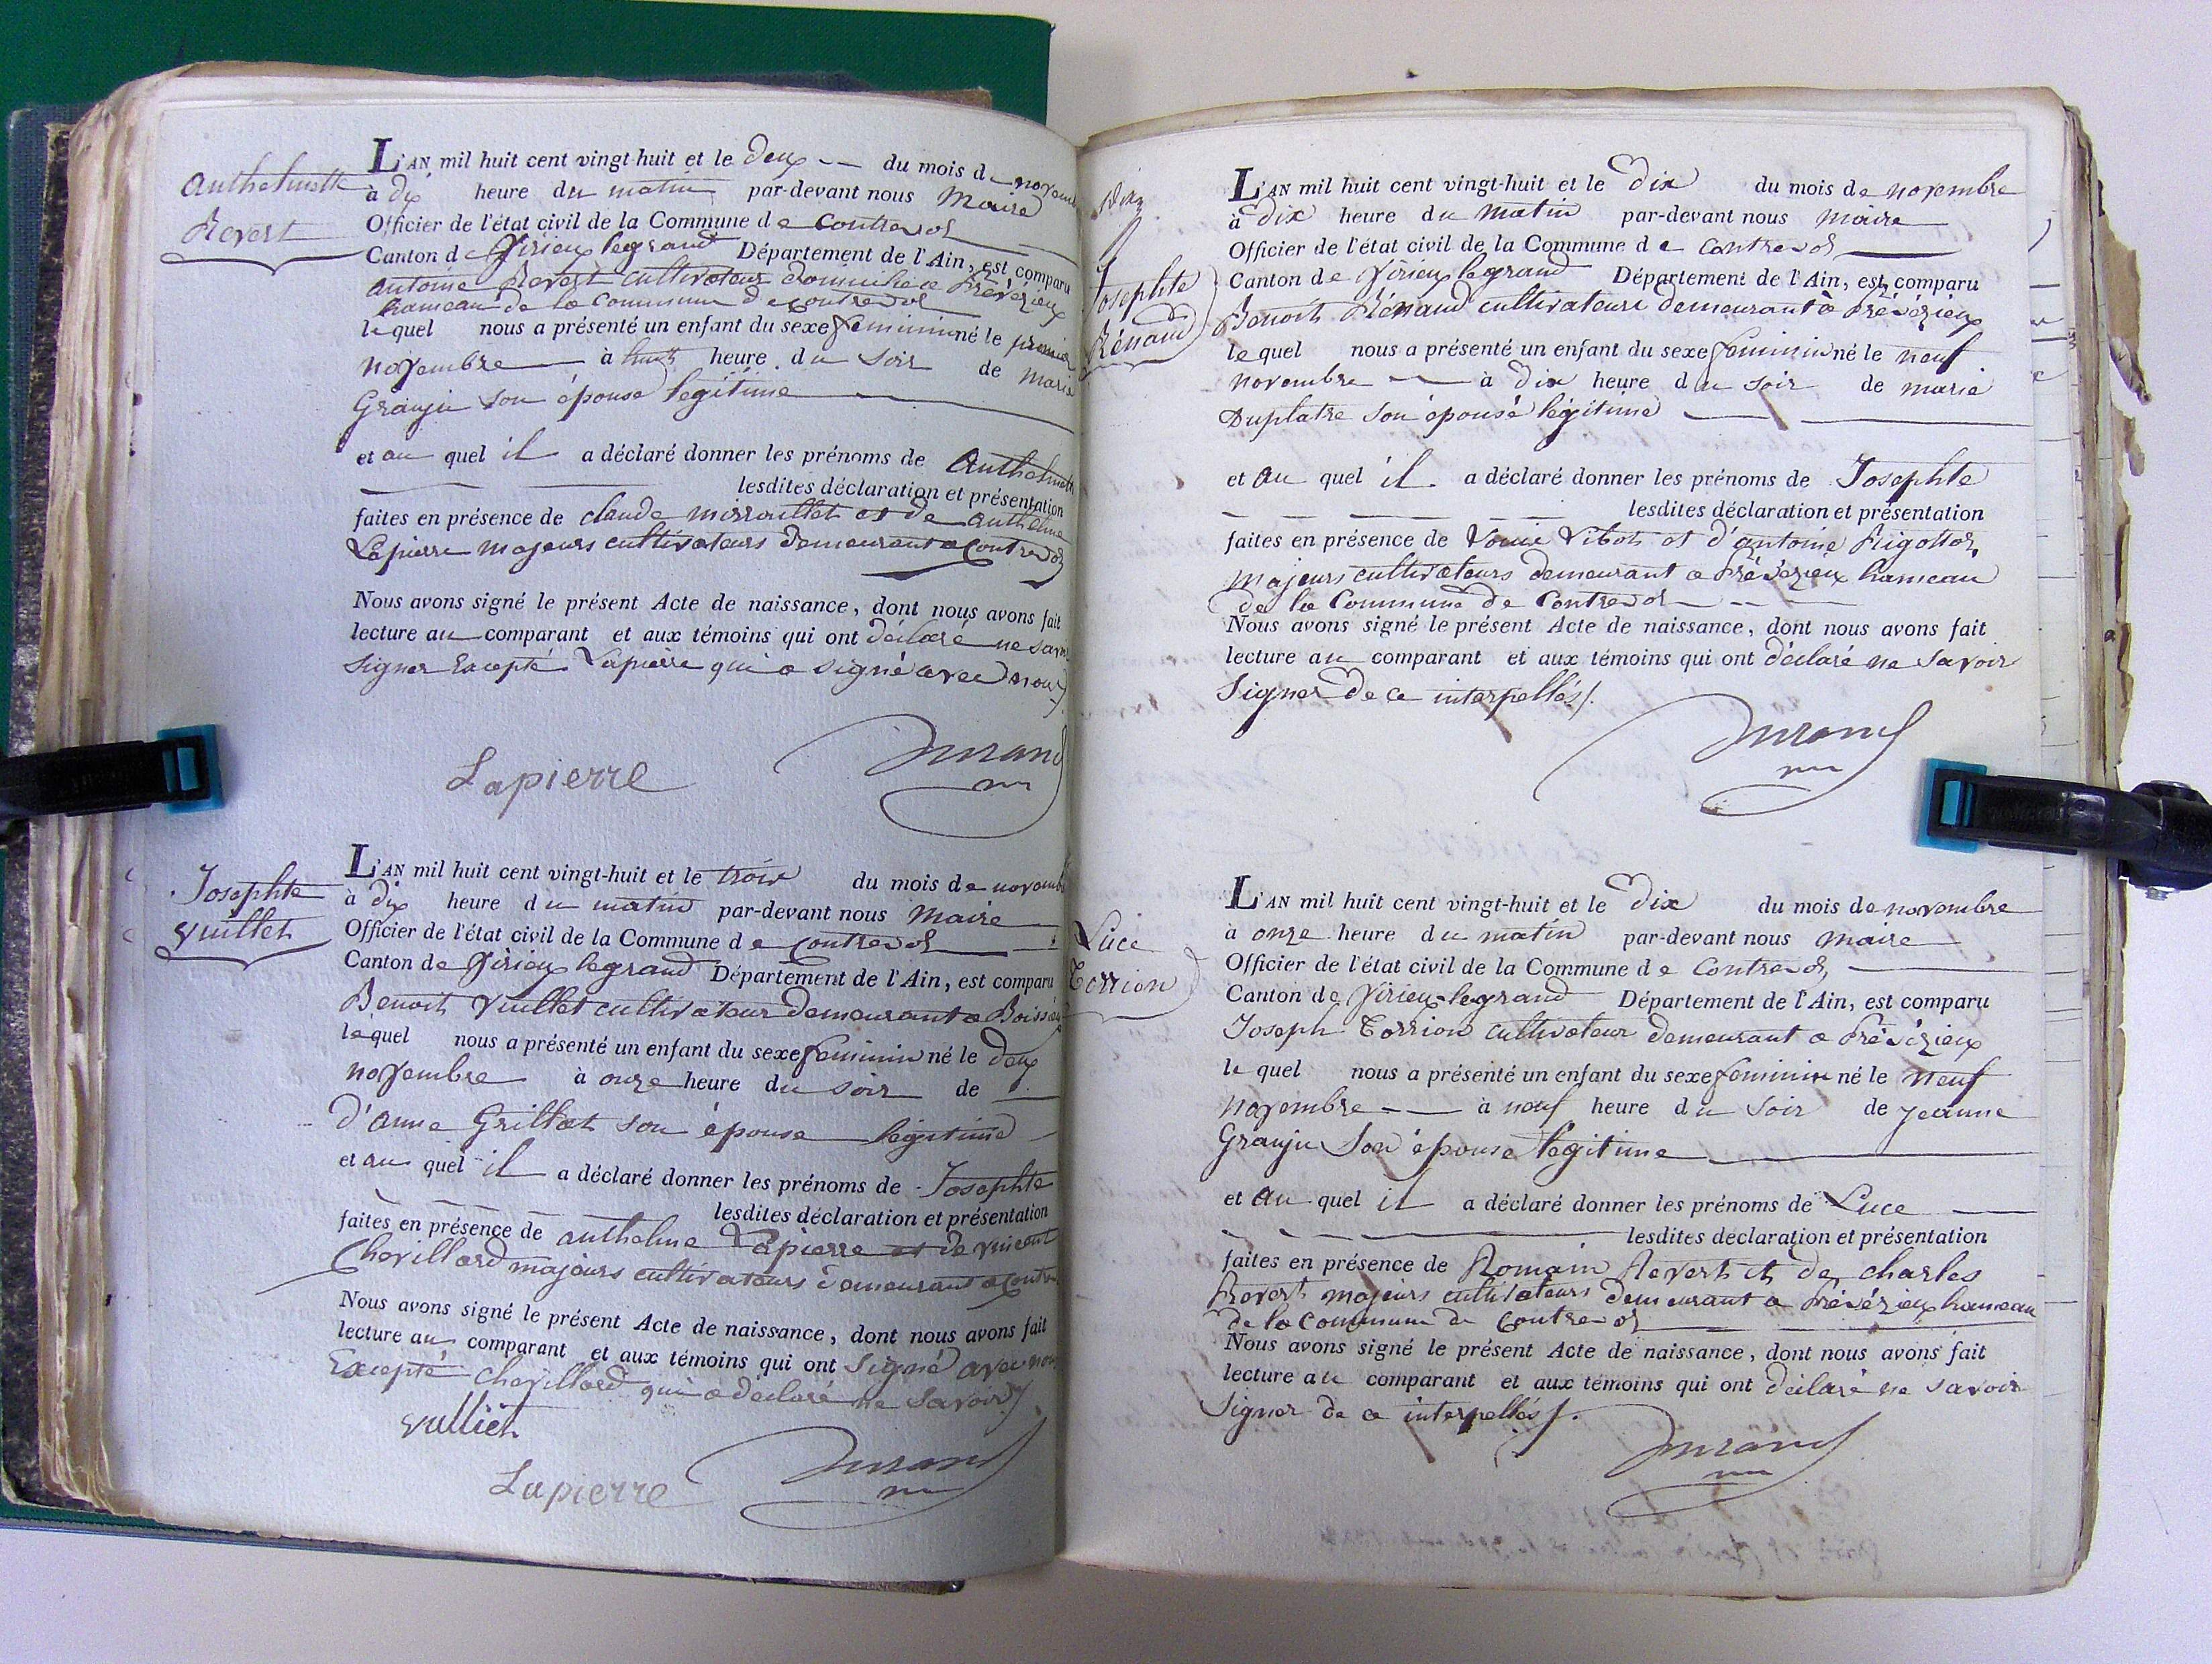 Anthelmette
Revert
L'AN mil huit cent vingt-huit et le deux du mois de novembre
à dix heure du matin par-devant nous Maire
Officier de l'état civil de la Commune de Contrevoz
Canton de Virieu legrand Département de l'Ain, est comparu
antoine Revert cultivateur domicilié a Prévézieux
hameau de la Commune de contrevoz
lequel nous a présenté un enfant du sexe feminin né le premier
novembre à huit heure du soir de marie
Granju son épouse légitime
et au quel il a déclaré donner les prénoms de Anthelmette
lesdites déclaration et présentation
faites en présence de claude et de anthelme
Lapierre majeurs cultivateurs demeurant a Contrevoz
Nous avons signé le présent Acte de naissance, dont nous avons fait
lecture au comparant et aux témoins qui ont déclaré ne savoir
signer Excepté Lapierre qui a signé avec nous
Lapierre Durand
Josephte
Vuillet
L'AN mil huit cent vingt-huit et le trois du mois de novembre
à dix heure du matin par-devant nous Maire
Officier de l'état civil de la Commune de Contrevoz
Canton de Virieu legrand Département de l'Ain, est comparu
Benoit Vuillet cultivateur demeurant a
lequel nous a présenté un enfant du sexe feminin né le deux
novembre à onze heure du soir de
d'anne Grillet son épouse légitime
et au quel il a déclaré donner les prénoms de Josephte
lesdites déclaration et présentation
faites en présence de anthelme Lapierre et de vincent
Chevillard majeurs cultivateurs demeurant a
Nous avons signé le présent Acte de naissance, dont nous avons fait
lecture au comparant et aux témoins qui ont signé avec nous
Excepté chevillard qui a déclaré ne savoir
vulliet
Lapierre Durand
Josephte
Rénaud
L'AN mil huit cent vingt-huit et le dix du mois de novembre
à dix heure du matin par-devant nous maire
Officier de l'état civil de la Commune de Contrevoz
Canton de Virieu legrand Département de l'Ain, est comparu
Benoit Rénaud cultivateure demeurant à Prévézieux
lequel nous a présenté un enfant du sexe feminin né le neuf
novembre à dix heure du soir de marie
Duplatre son épouse légitime
et au quel il a déclaré donner les prénoms de Josephte
lesdites déclaration et présentation
faites en présence de Vibot et d'antoine
majeurs cultivateurs demeurant a Prévézieux hameau
de la Commune de Contrevoz
Nous avons signé le présent Acte de naissance, dont nous avons fait
lecture au comparant et aux témoins qui ont déclaré ne savoir
signer de ce interpellés/.
Durand
Luce
Torrion
L'AN mil huit cent vingt-huit et le dix du mois de novembre
à onze heure du matin par-devant nous maire
Officier de l'état civil de la Commune de Contrevoz
Canton de Virieu-legrand Département de l'Ain, est comparu
Joseph Torrion cultivateur demeurant a Prévézieux
lequel nous a présenté un enfant du sexe feminin né le neuf
novembre à neuf heure du soir de jeanne
Granju son épouse légitime
et au quel il a déclaré donner les prénoms de Luce
lesdites déclaration et présentation
faites en présence de Romain Revert et de charles
Revert majeurs cultivateurs demeurant a Prévézieux hameau
de la commune de Contrevoz
Nous avons signé le présent Acte de naissance, dont nous avons fait
lecture au comparant et aux témoins qui ont déclaré ne savoir
signer de ce interpellés/.
Durand